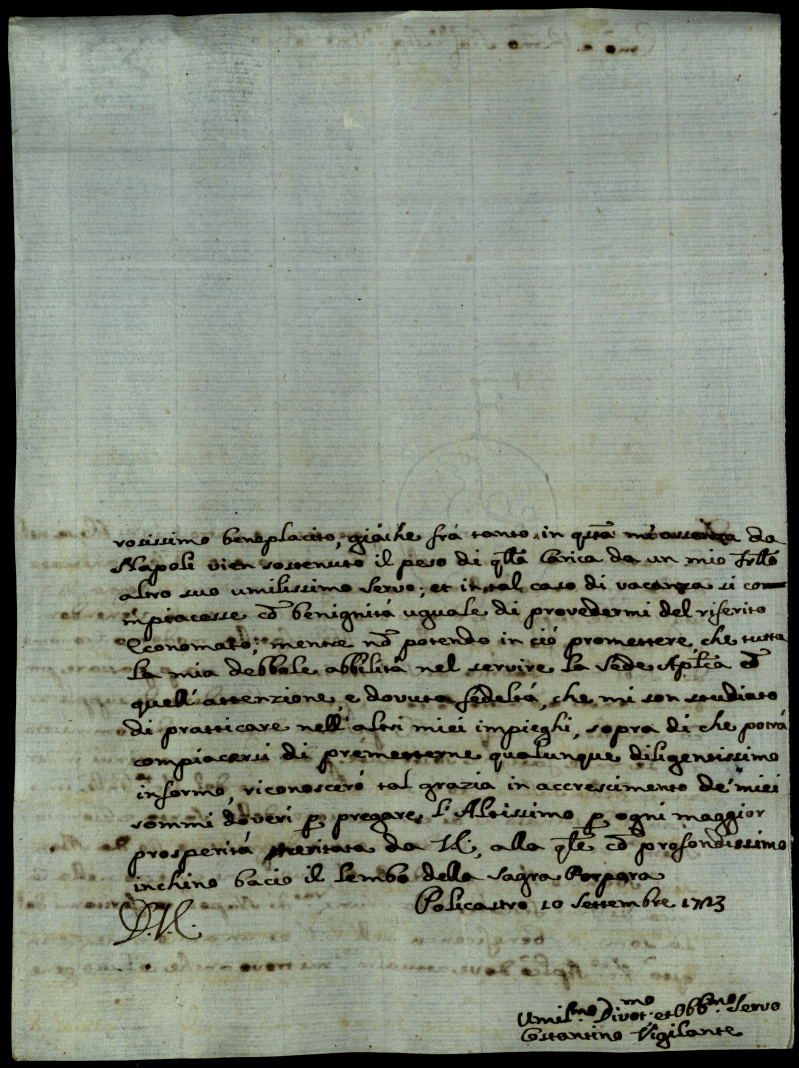 rosissimo beneplacito, giáche frá tanto in qstã mia assenza da
Napoli vien sostenuto il peso di qllã Carica da un mio frllo
altro suo umilissimo servo; et in tal caso di vacanza si com-
mpiacesse cõ benignitá uguale di provedermi del riferito
Economato; mentre nõ potendo in ció promettere, che tutta
la mia debbole abbilitá nel servire la Sede Aplĩca cõ
quell'attenzione, e dovuta fedeltá, che mi son studiato
di pratticare nell'altri miei impieghi, sopra di che potrá
compiacersi di premetterne qualunque diligentissimo
informo, riconosceró tal grazia in accrescimento de' miei
sommi doveri p̱ pregare l'Altissimo p̱ ogni maggior
prosperitá meritata da V.E., alla qle cõ profondissimo
inchino bacio il lembo della Sagra Porpora
Policastro 10 Settembre 1723
D.V.E.
Umil.mo Divot.mo et Obb.mo Servo
Costantino Vigilante